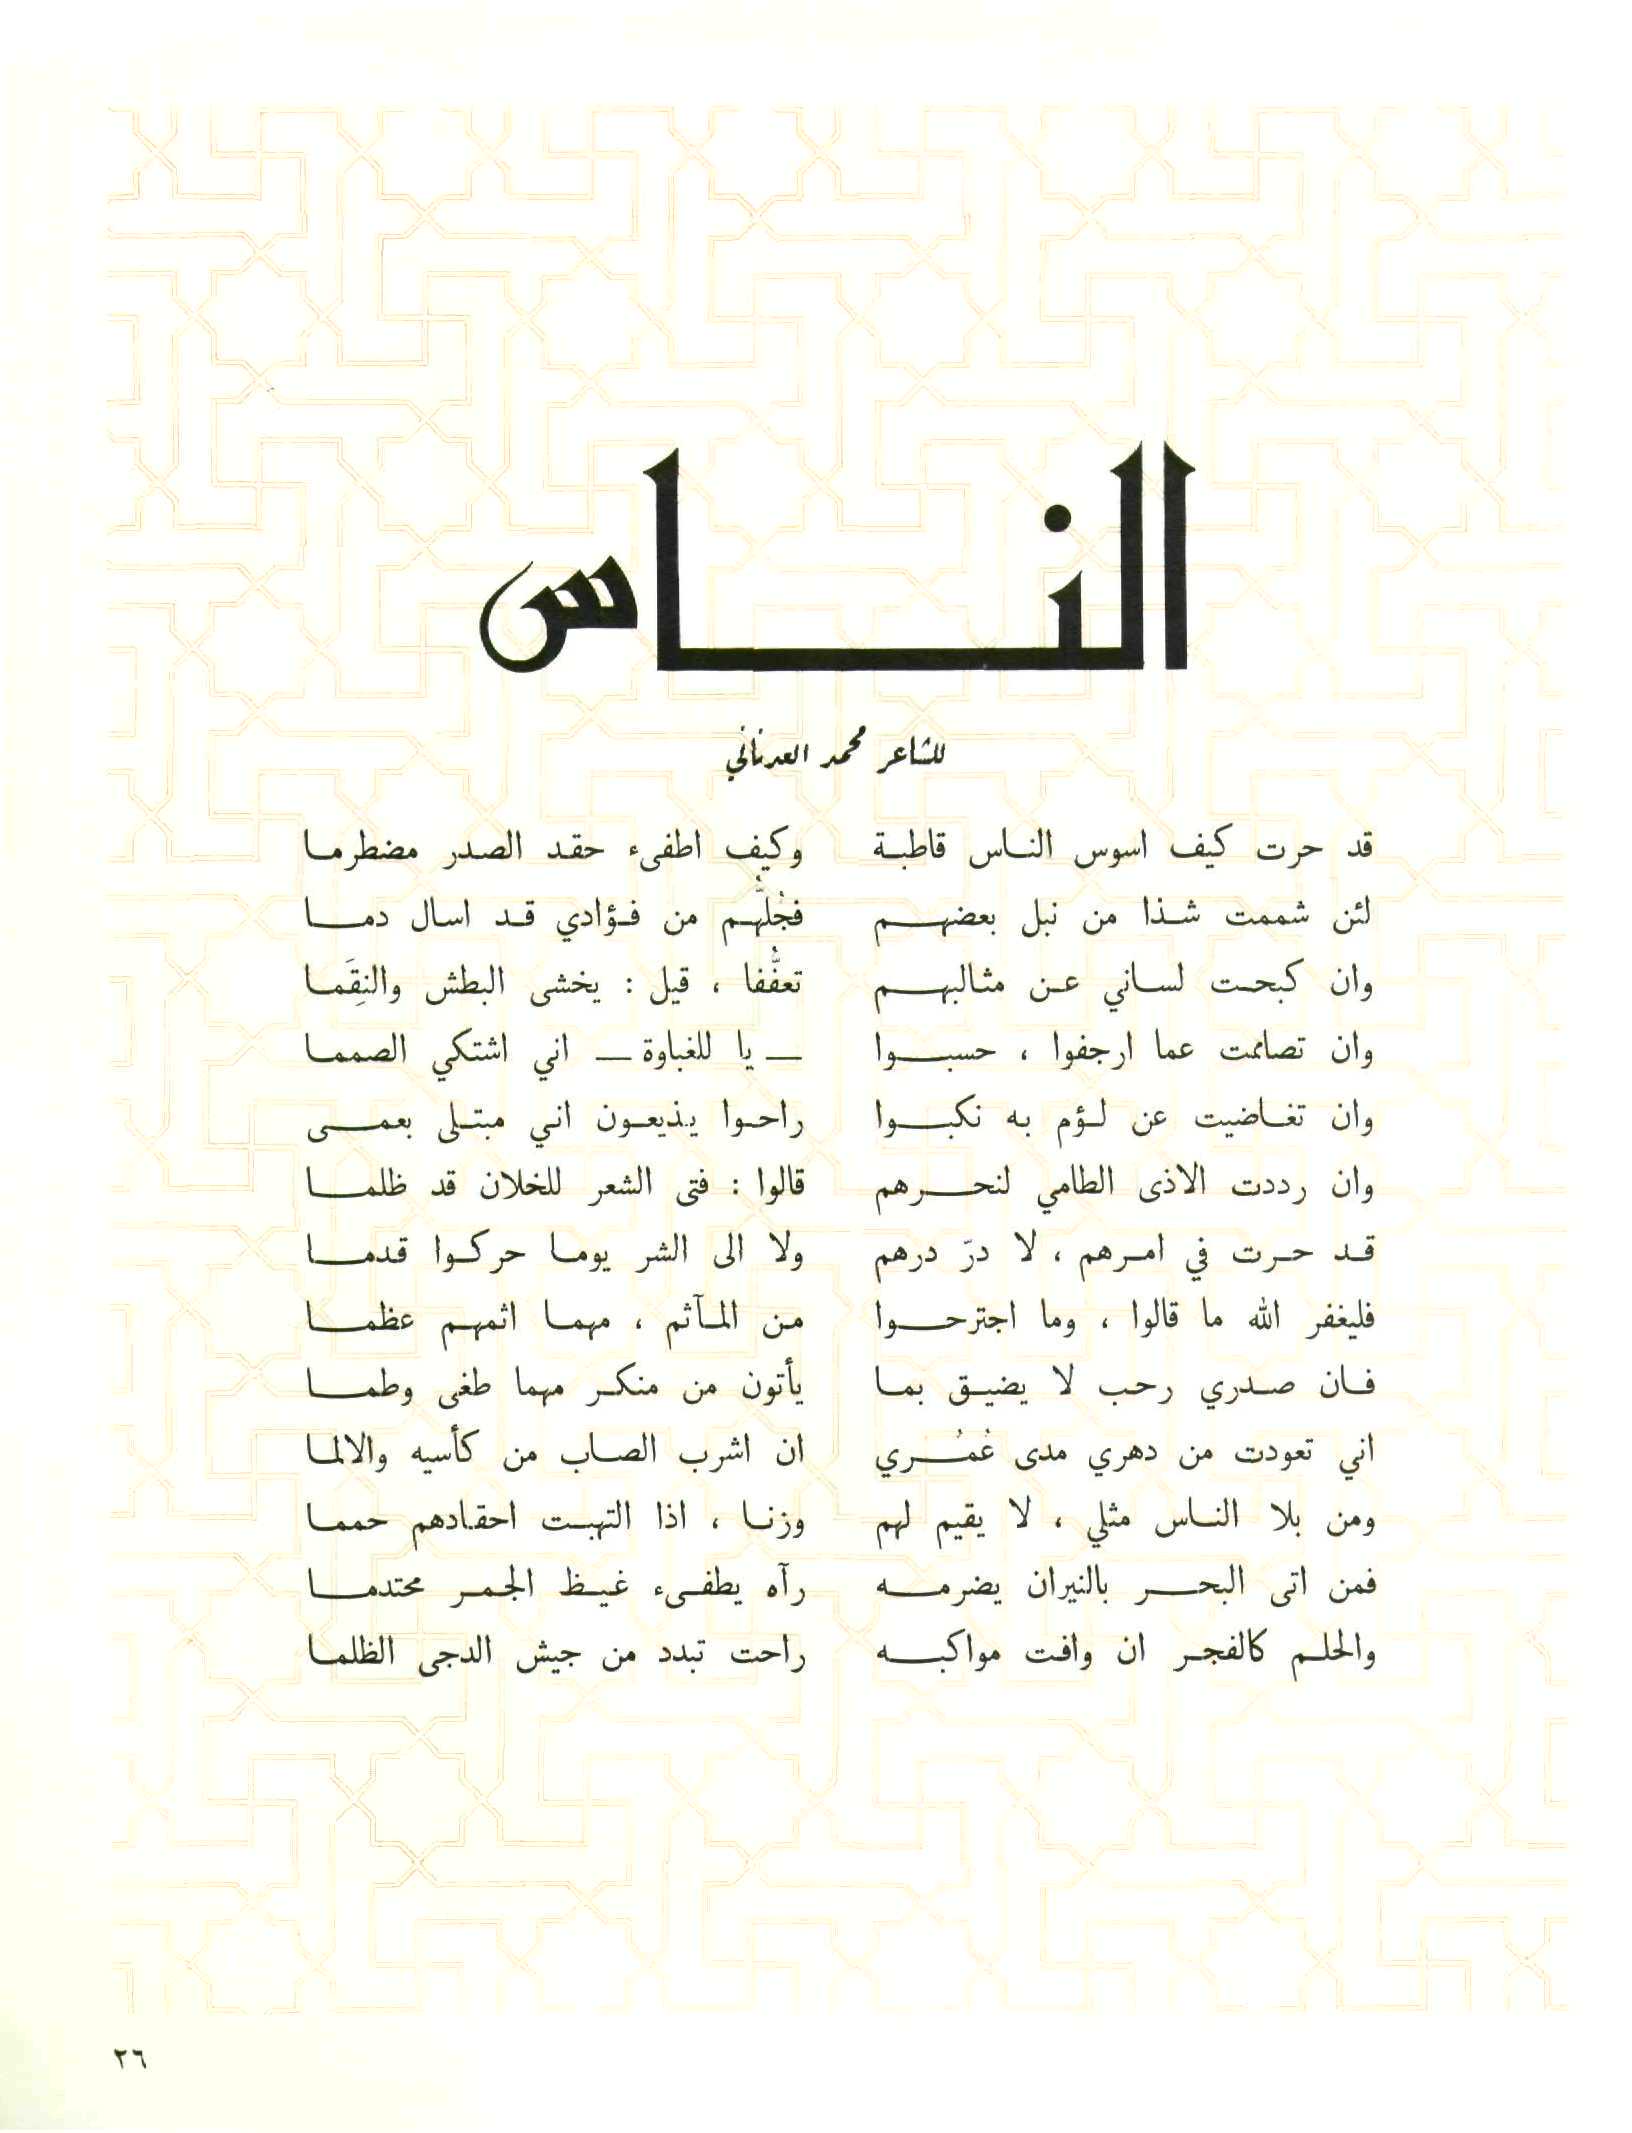 الناس
للشاعر محمد العدناني
قد حرت كيف اسوس الناس قاطبة وكيف اطفىء حقد الصدر مضطرما
لئن شممت شذا من نبل بعضهم فجُلُّهم من فؤادي قد اسال دما
وان كبحت لساني عن مثالبهم تعفُّفا ، قيل : يخشى البطش والنِقَما
وان تصاممت عما ارجفوا ، حسبوا — يا للغباوة — اني اشتكي الصمما
وان تغاضيت عن لؤم به نكبوا راحوا يذيعون اني مبتلى بعمى
وان رددت الاذى الطامي لنحرهم قالوا : فتى الشعر للخلان قد ظلما
قد حرت في امرهم ، لا درّ درهم ولا الى الشر يوما حركوا قدما
فليغفر الله ما قالوا ، وما اجترحوا من المآثم ، مهما اثمهم عظما
فان صدري رحب لا يضيق بما يأتون من منكر مهما طغى وطما
اني تعودت من دهري مدى عُمُري ان اشرب الصاب من كأسيه والالما
ومن بلا الناس مثلي ، لا يقيم لهم وزنا ، اذا التهبت احقادهم حمما
فمن اتى البحر بالنيران يضرمه رآه يطفىء غيظ الجمر محتدما
والحلم كالفجر ان وافت مواكبه راحت تبدد من جيش الدجى الظلما
٢٦